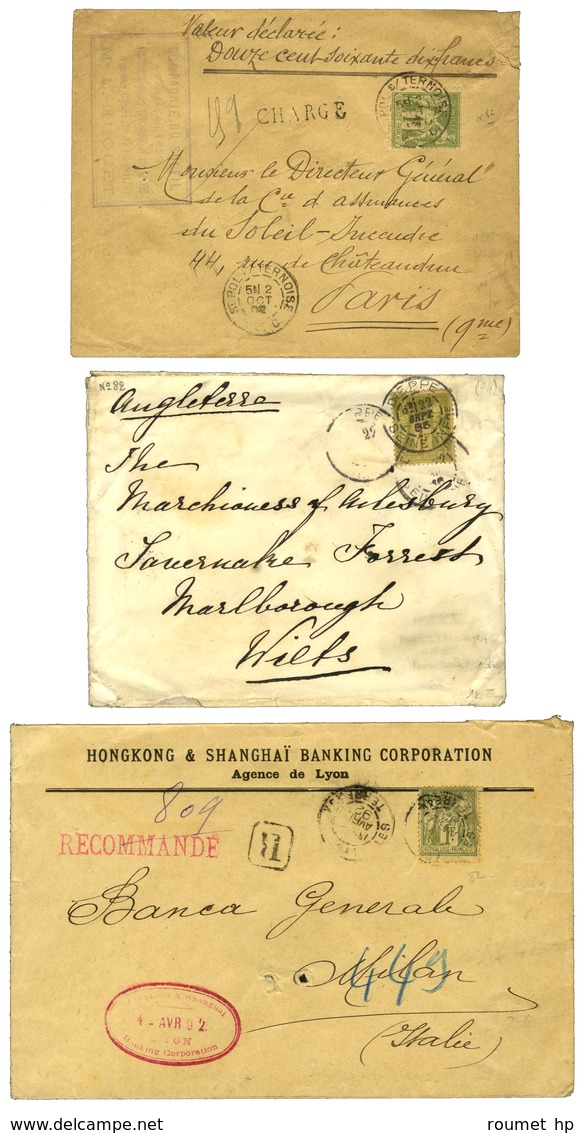 Valeur déclarée:
Douze cent soixante dix francs
CHARGÉ
Monsieur le Directeur Général
de la Cie d'assurances
du Soleil-Incendie
44, rue de Châteaudun
Paris
(9me)
ST POL S/ TERNOISE
5E 2
OCT
02
No 82
Angleterre
DIEPPE
22
SEPT
The
Marchioness of Ailesbury
Savernake Forrest
Marlborough
Wilts
HONGKONG & SHANGHAÏ BANKING CORPORATION
Agence de Lyon
809
RECOMMANDÉ
R
Banca Generale
449
Milan
(Italie)
4 - AVR 92
LYON
Banking Corporation
82
roumet hp